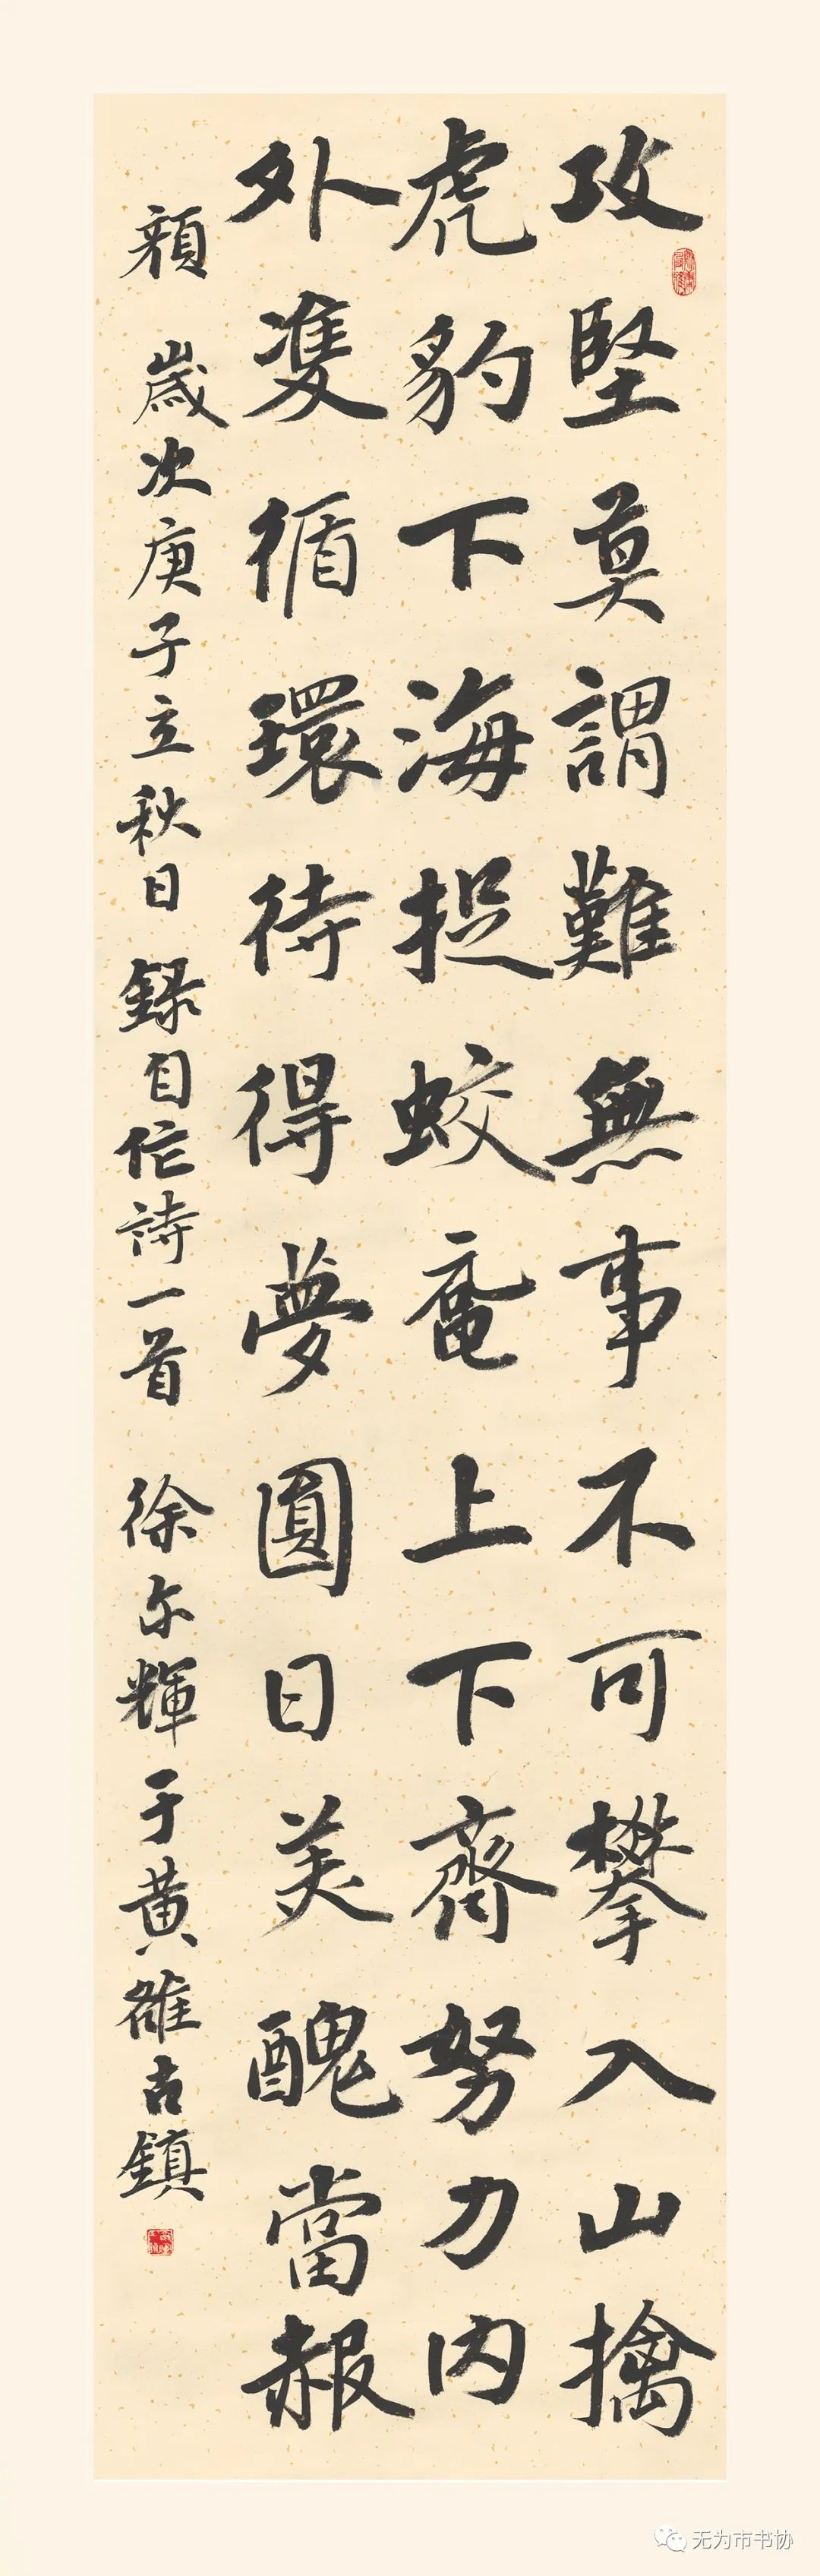 攻堅莫謂難無事不可攀入山擒
虎豹下海捉蛟黿上下齊努力内
外雙循環待得夢圓日美醜當赧
顏 歲次庚子立秋日 錄自作詩一首 徐尔輝于黄雒古鎮
无为市书协